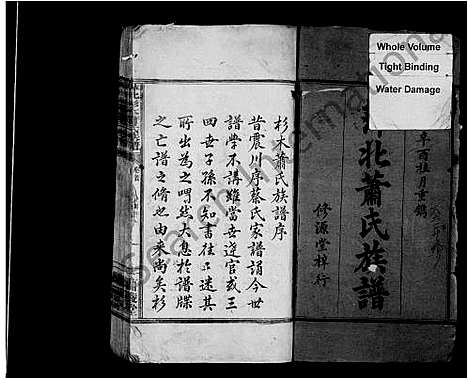 Whole Volume
Tight Binding
Water Damage
辛酉桂月重鐫
北蕭氏族譜
修源堂梓行
杉木蕭氏族譜序
昔震川序蔡氏家譜謂今世
譜學不講雖當世達官或三
四世子孫不知書往〻迷其
所出為之喟然大息於譜牒
之亡譜之脩也由来尚矣杉